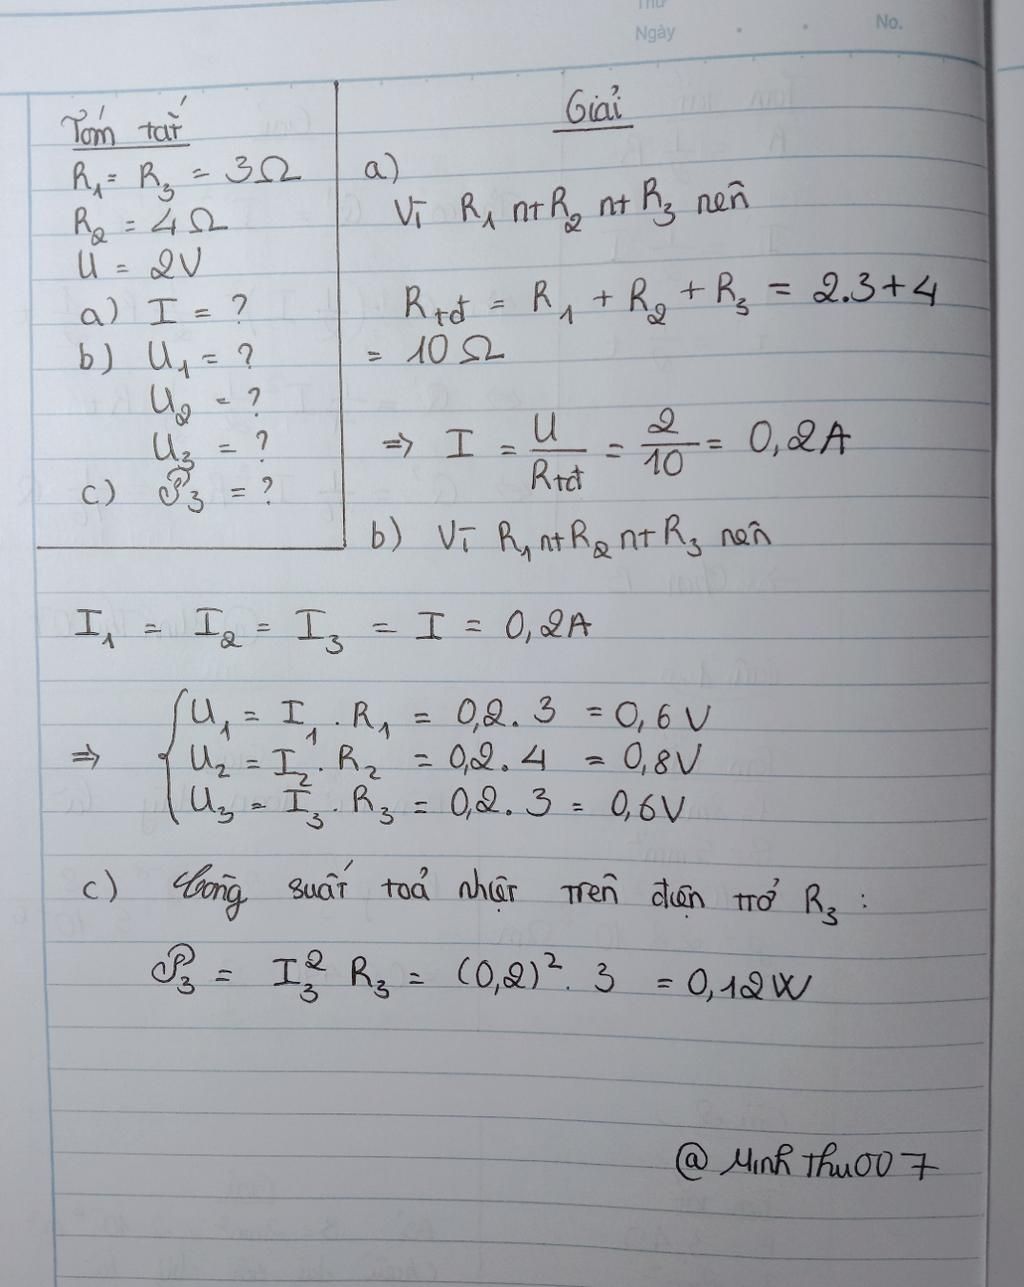 Thứ
Ngày
No.
Tóm tắt
R₁ = R₃ = 3Ω
R₂ = 4Ω
U = 2V
a) I = ?
b) U₁ = ?
U₂ = ?
U₃ = ?
c) 𝒫₃ = ?
Giải
a)
Vì R₁ nt R₂ nt R₃ nên
Rtđ = R₁ + R₂ + R₃ = 2.3+4
= 10Ω
=> I = U/Rtđ = 2/10 = 0,2A
b) Vì R₁ nt R₂ nt R₃ nên
I₁ = I₂ = I₃ = I = 0,2A
=> { U₁ = I₁ . R₁ = 0,2. 3 = 0,6V
U₂ = I₂. R₂ = 0,2. 4 = 0,8V
U₃ = I₃. R₃ = 0,2. 3 = 0,6V
c) Công suất toả nhiệt trên điện trở R₃ :
𝒫₃ = I₃² R₃ = (0,2)². 3 = 0,12W
@ Minh Thu007